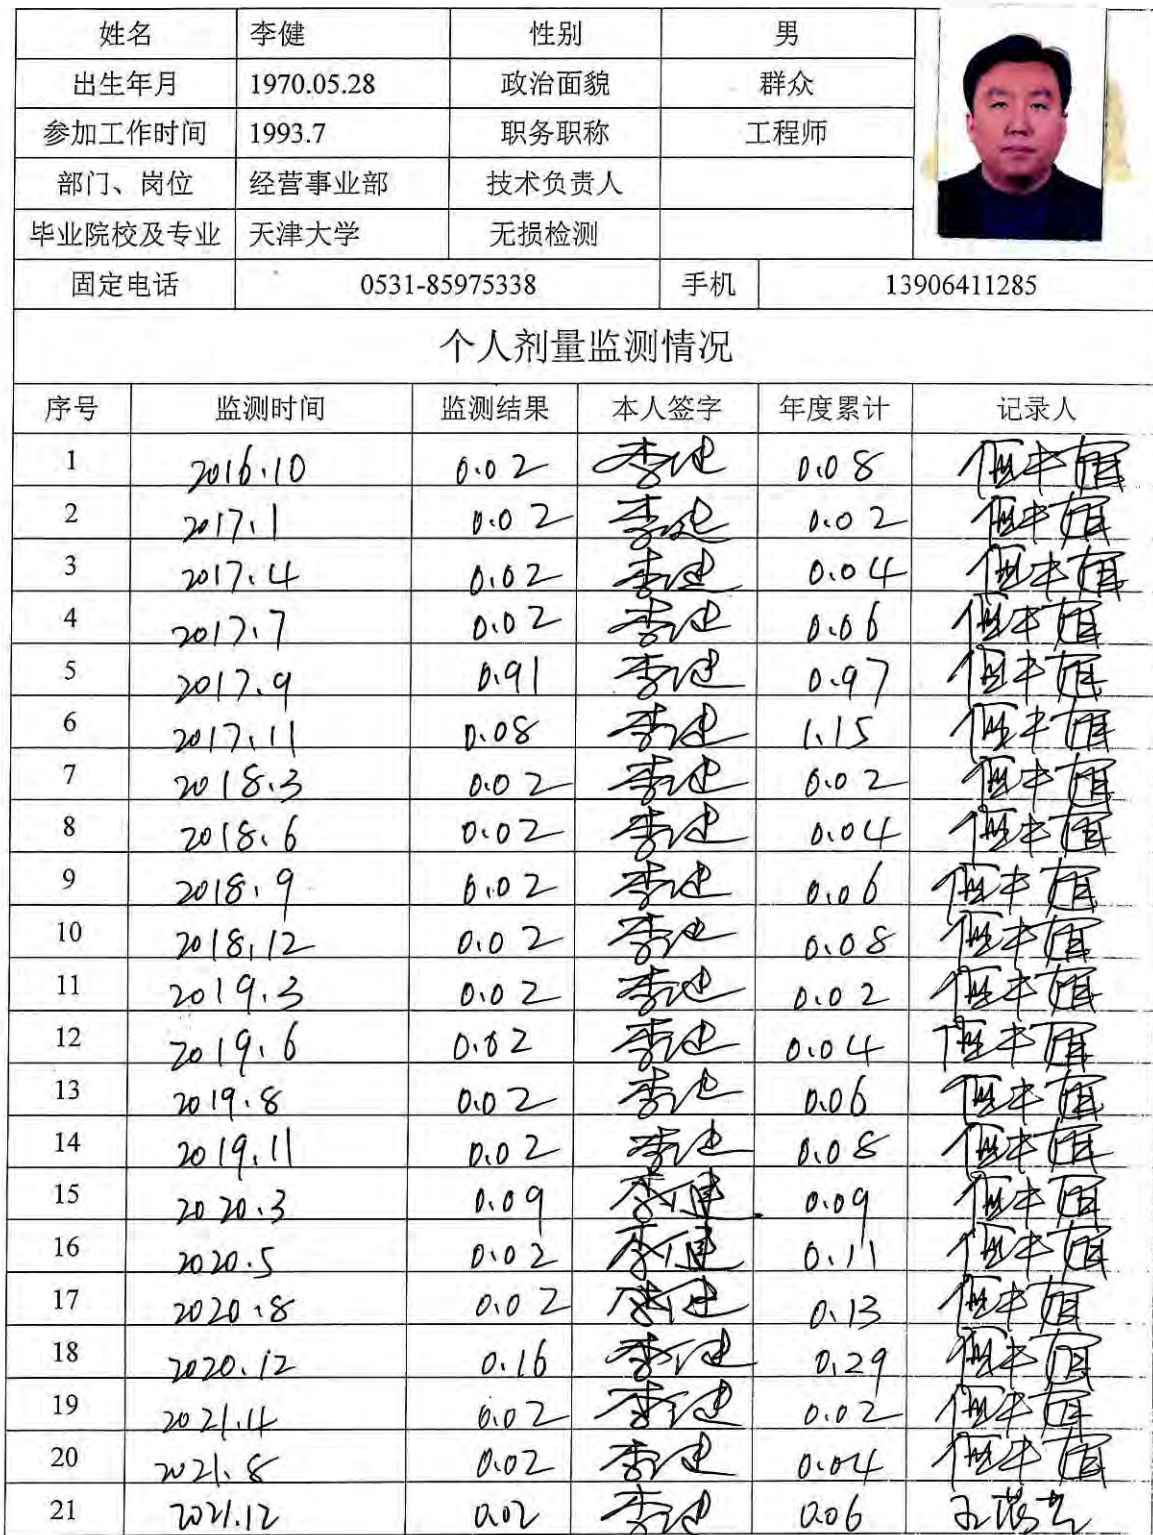 姓名 李健 性别 男
出生年月 1970.05.28 政治面貌 群众
参加工作时间 1993.7 职务职称 工程师
部门、岗位 经营事业部 技术负责人
毕业院校及专业 天津大学 无损检测
固定电话 0531-85975338 手机 13906411285
个人剂量监测情况
序号 监测时间 监测结果 本人签字 年度累计 记录人
1 2016.10 0.02 李健 0.08
2 2017.1 0.02 李健 0.02
3 2017.4 0.02 李健 0.04
4 2017.7 0.02 李健 0.06
5 2017.9 0.91 李健 0.97
6 2017.11 0.08 李健 1.15
7 2018.3 0.02 李健 0.02
8 2018.6 0.02 李健 0.04
9 2018.9 0.02 李健 0.06
10 2018.12 0.02 李健 0.08
11 2019.3 0.02 李健 0.02
12 2019.6 0.02 李健 0.04
13 2019.8 0.02 李健 0.06
14 2019.11 0.02 李健 0.08
15 2020.3 0.09 李健 0.09
16 2020.5 0.02 李健 0.11
17 2020.8 0.02 李健 0.13
18 2020.12 0.16 李健 0.29
19 2021.4 0.02 李健 0.02
20 2021.8 0.02 李健 0.04
21 2021.12 0.02 李健 0.06